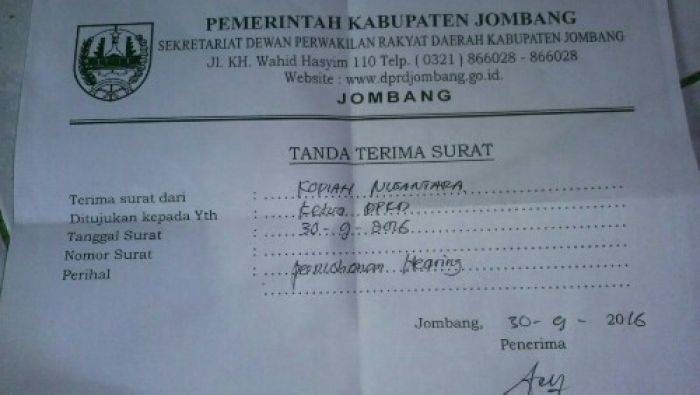 PEMERINTAH KABUPATEN JOMBANG
SEKRETARIAT DEWAN PERWAKILAN RAKYAT DAERAH KABUPATEN JOMBANG
Jl. KH. Wahid Hasyim 110 Telp. ( 0321 ) 866028 - 866028
Website : www.dprdjombang.go.id.
JOMBANG
TANDA TERIMA SURAT
Terima surat dari : KOPIAH NUSANTARA
Ditujukan kepada Yth : Ketua DPRD
Tanggal Surat : 30-9-2016
Nomor Surat :
Perihal : permohonan Hearing
Jombang, 30-9-2016
Penerima